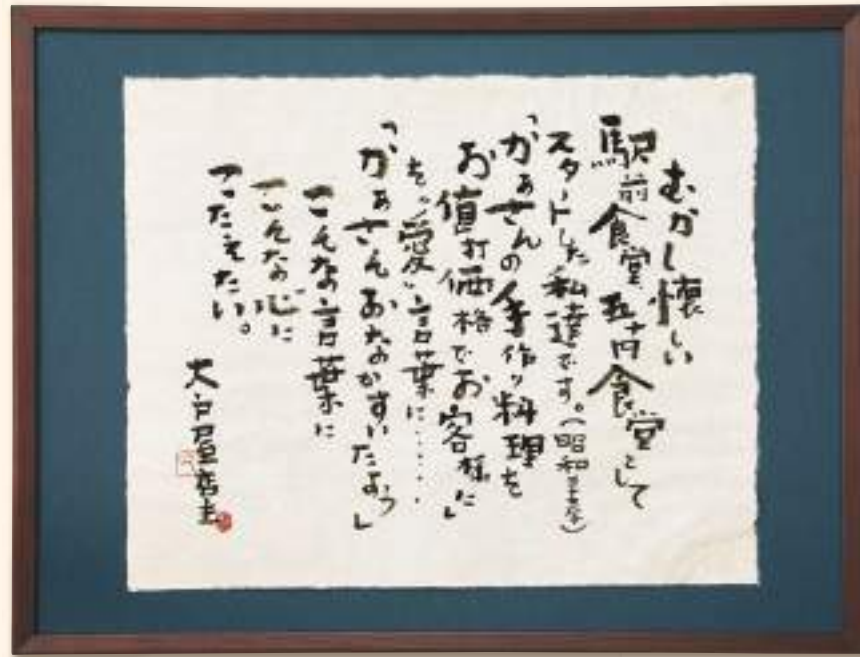 むかし懐しい
駅前食堂、五十円食堂として
スタートした私達です。(昭和三十三年)
「かあさんの手作り料理を
お値打価格でお客様に」
を〝愛い言葉に……
「かあさんおなかすいたよう」
こんな言葉に
こんな心に
こたえたい。
大戸屋店主